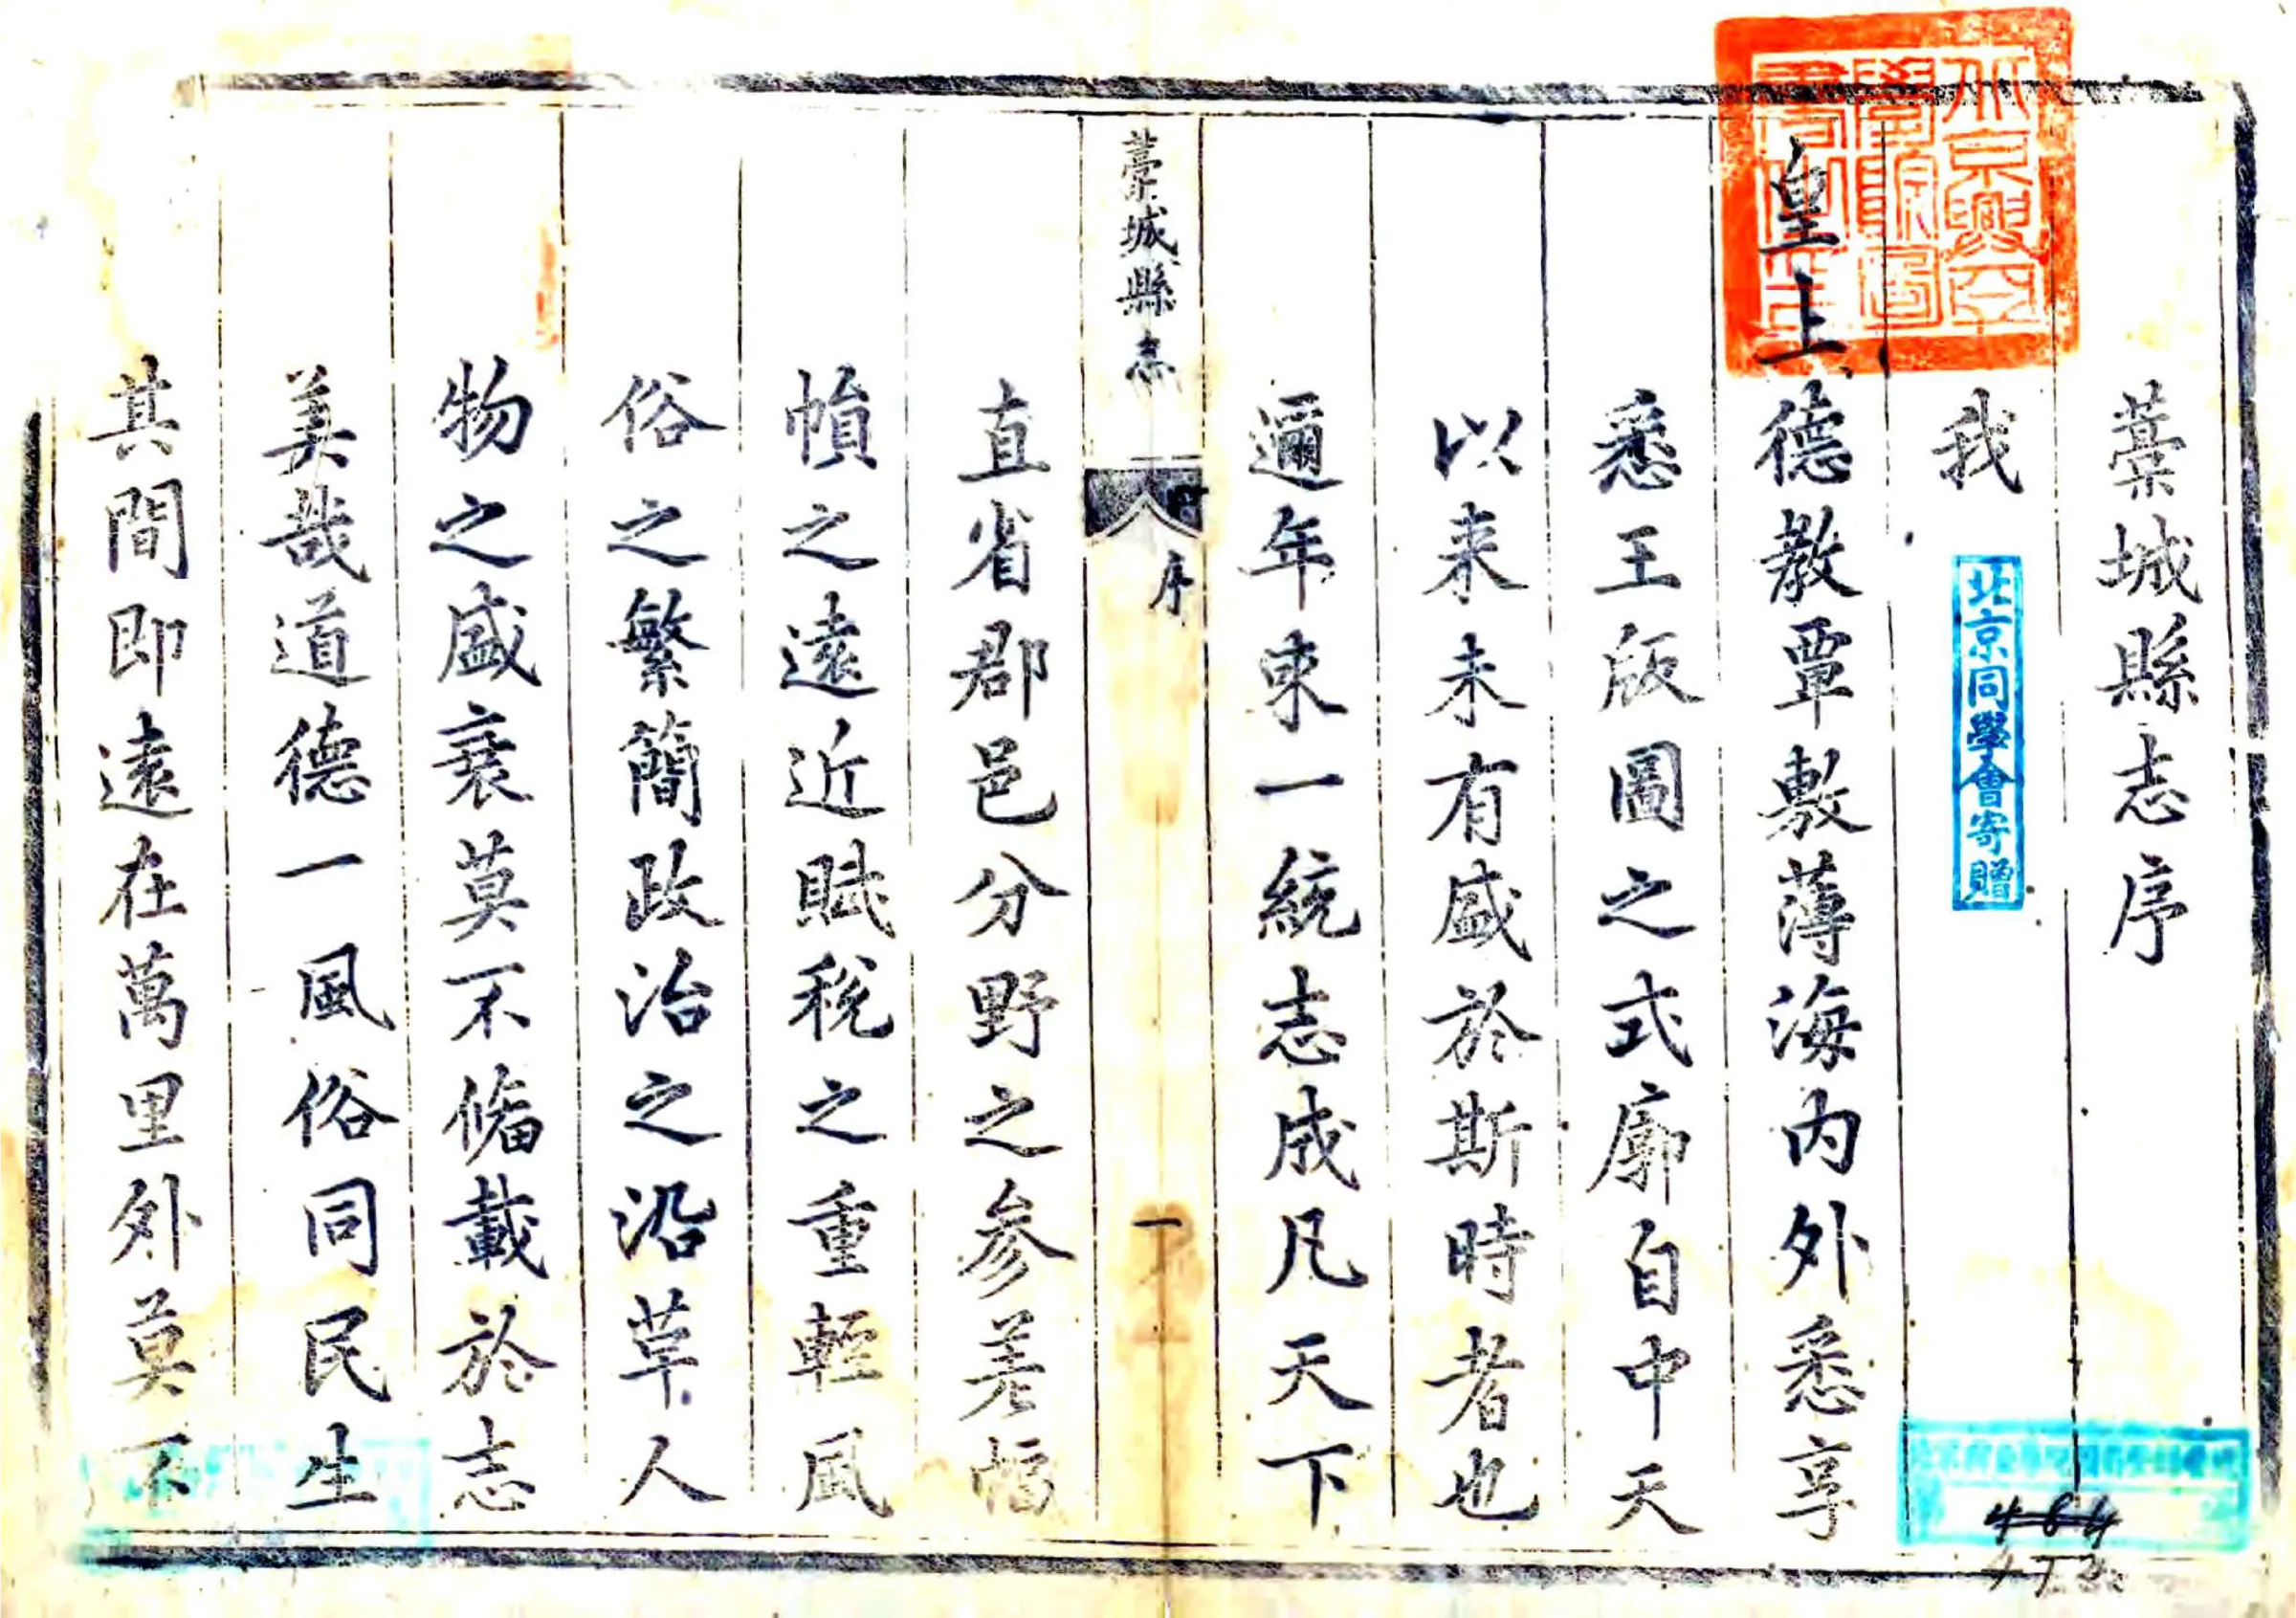 藁城縣志序
我
皇上德教覃敷薄海内外悉享
悉王版圖之式廓自中天
以来未有盛於斯時者也
邇年来一統志成凡天下
藁城縣志
序
一
直省郡邑分野之参差幅
幀之遠近賦稅之重輕風
俗之繁簡政治之沿草人
物之盛衰莫不偹載於志
美哉道德一風俗同民生
其間即遠在萬里外莫不
北京同學會寄贈
484